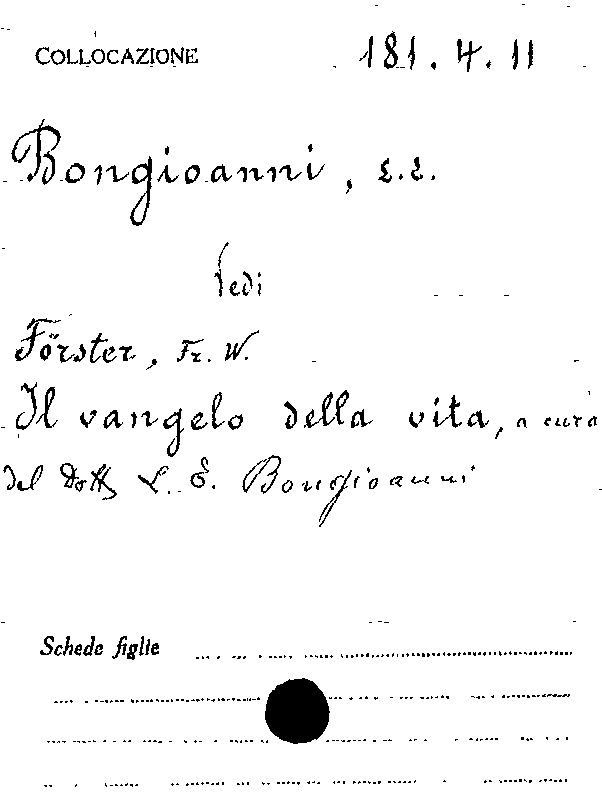 COLLOCAZIONE 181.4.11
Bongioanni, L.E.
Vedi
Förster, Fr. W.
Il vangelo della vita, a cura
del Dott. L. E. Bongioanni
Schede figlie